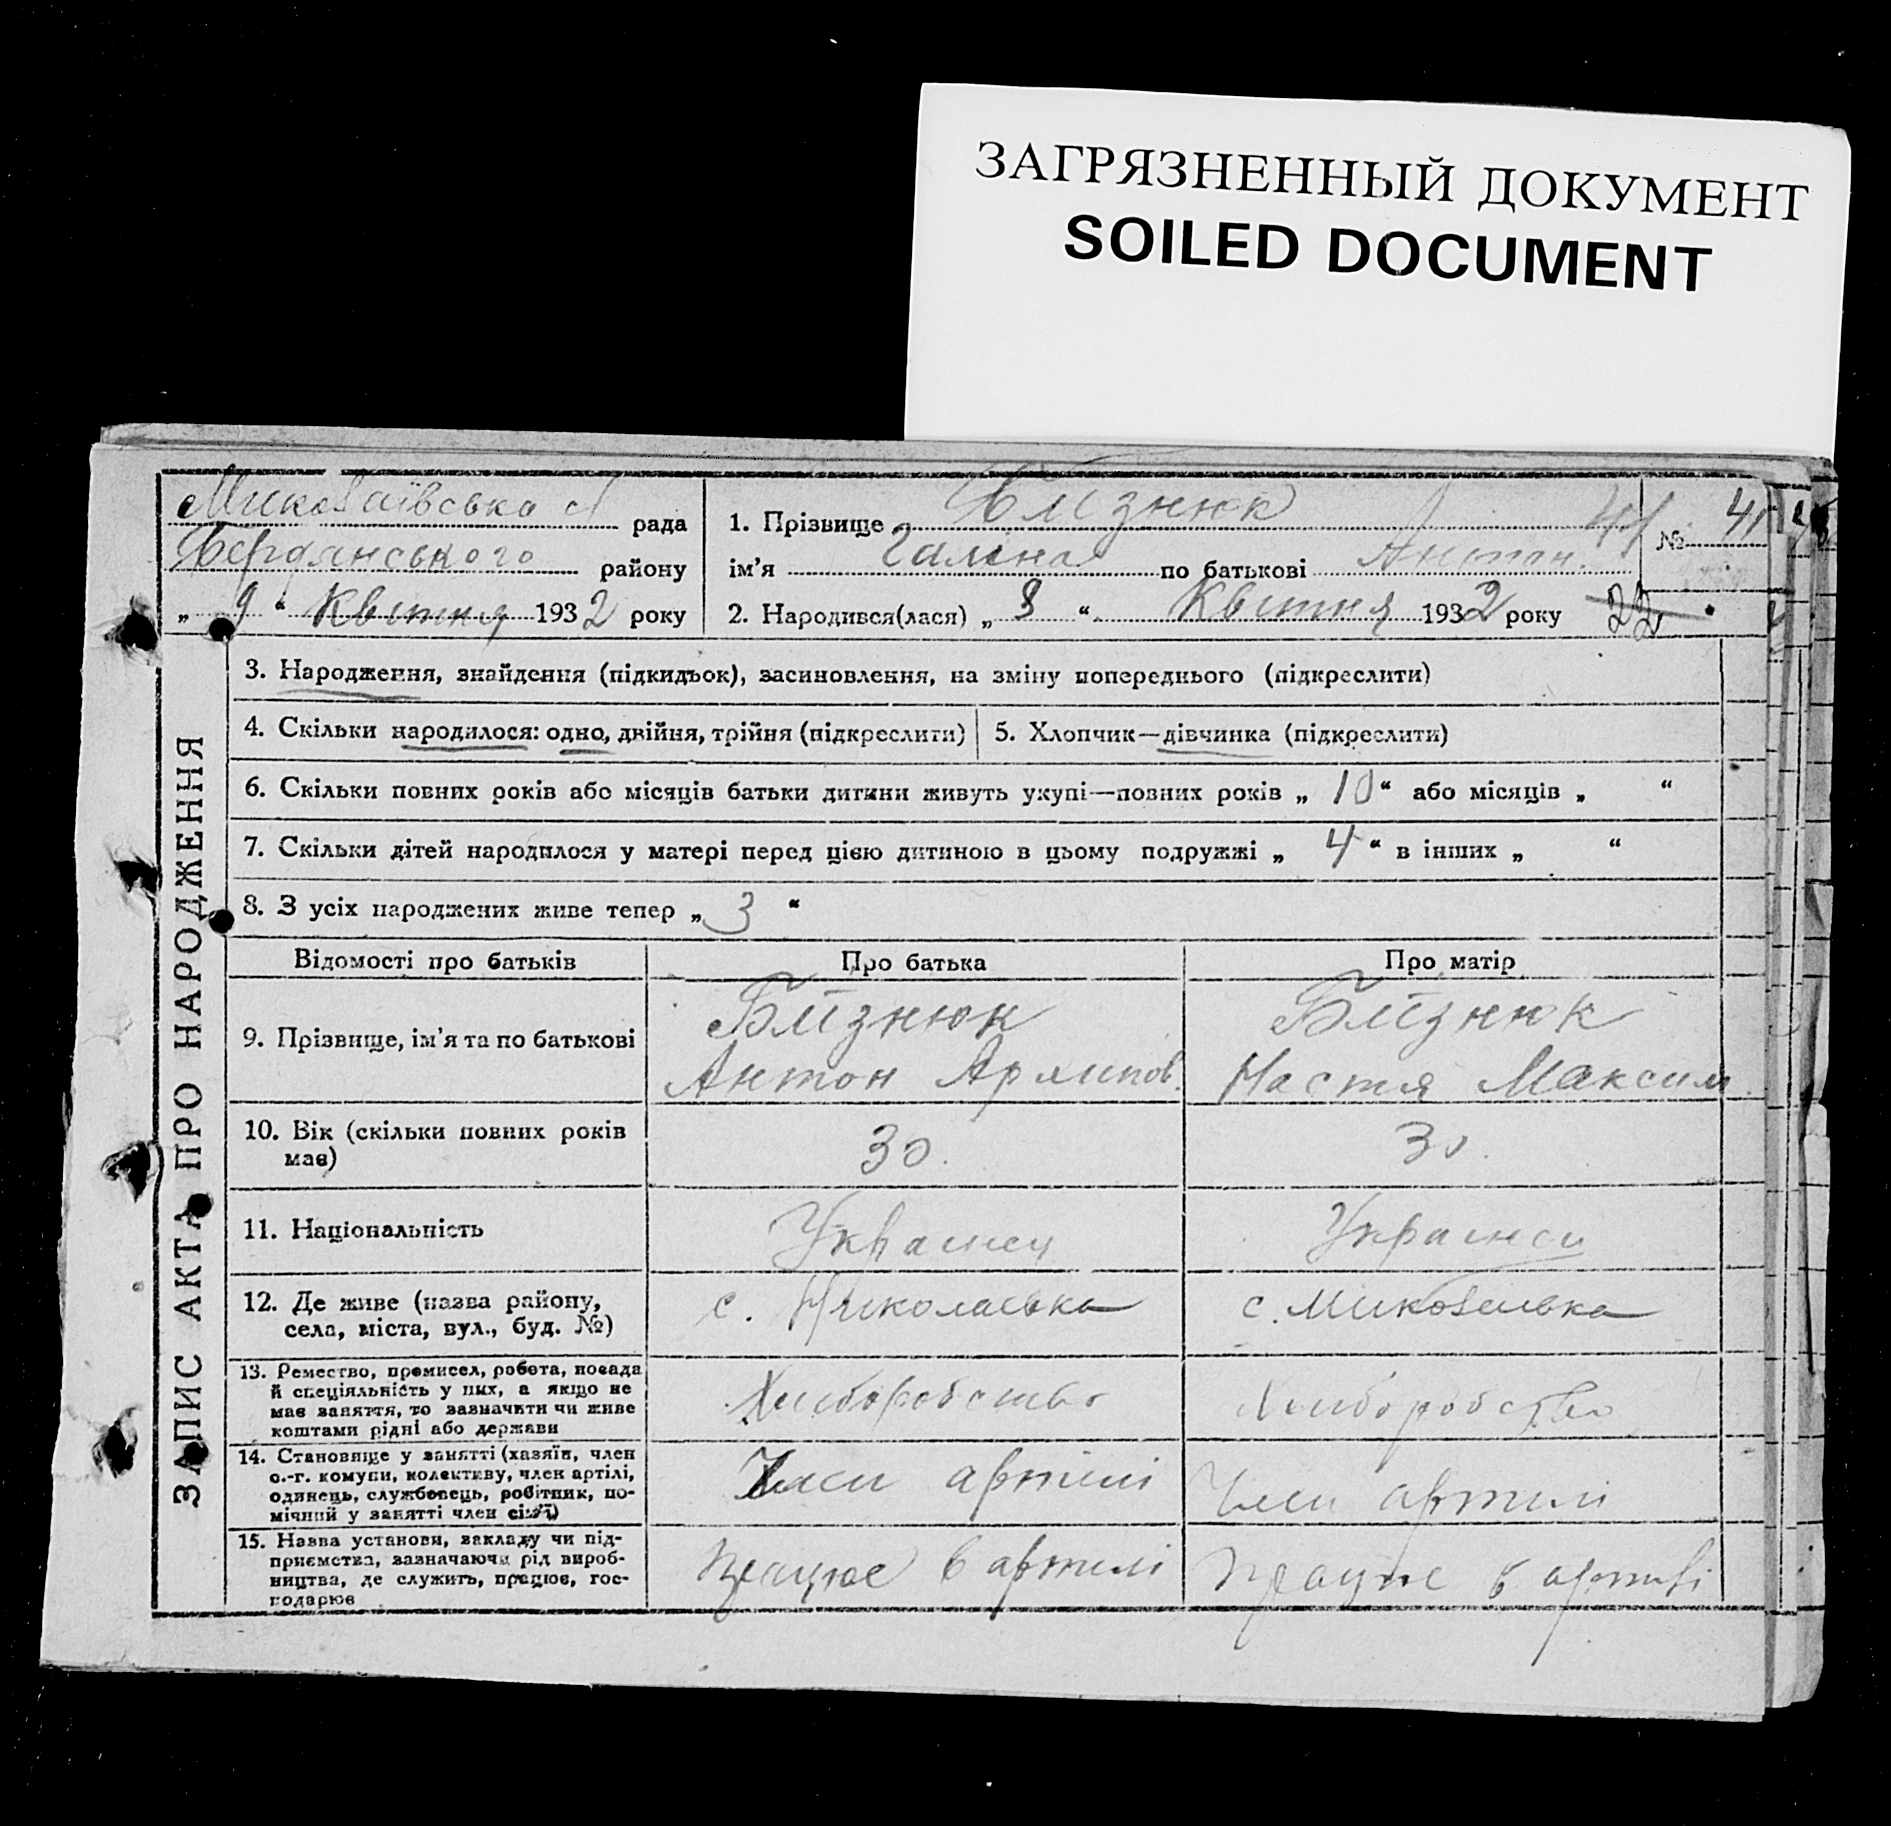 ЗАГРЯЗНЕННЫЙ ДОКУМЕНТ
SOILED DOCUMENT
ЗАПИС АКТА ПРО НАРОДЖЕННЯ
Миколаївська рада
Бердянського району
„ 9 “ Квітня 1932 року
1. Прізвище Близнюк
ім'я Галина по батькові Антон.
№ 41
41
2. Народився(лася) „ 8 “ Квітня 1932 року
22
3. Народження, знайдення (підкидьок), засиновлення, на зміну попереднього (підкреслити)
4. Скільки народилося: одно, двійня, трійня (підкреслити)
5. Хлопчик—дівчинка (підкреслити)
6. Скільки повних років або місяців батьки дитини живуть укупі—повних років „ 10 “ або місяців „ “
7. Скільки дітей народилося у матері перед цією дитиною в цьому подружжі „ 4 “ в інших „ “
8. З усіх народжених живе тепер „ 3 “
Відомості про батьків Про батька Про матір
9. Прізвище, ім'я та по батькові
Близнюк
Антон Архипов.
Близнюк
Настя Максим.
10. Вік (скільки повних років
має)
30.
30.
11. Національність
Украинец
Украинси
12. Де живе (назва району,
села, міста, вул., буд. №)
с. Николаевка
с. Миколаивка
13. Ремество, промисел, робота, посада
й спеціяльність у них, а якщо не
має заняття, то зазначити чи живе
коштами рідні або держави
Хлиборобство
Хлиборобство
14. Становище у занятті (хазяїн, член
с.-г. комуни, колективу, член артілі,
одинець, службовець, робітник, по-
мічний у занятті член сім'ї)
Член артилі
Член артилі
15. Назва установи, закладу чи під-
приємства, зазначаючи рід вироб-
ництва, де служить, працює, гос-
подарює
працює в артилі
працює в артилі